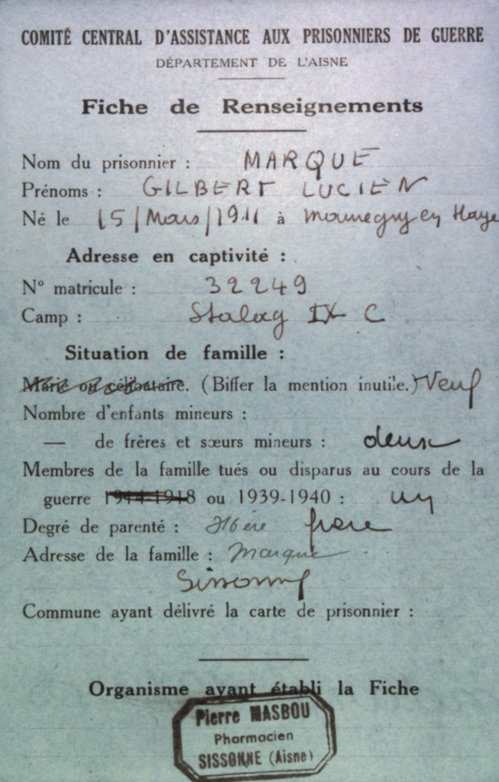 COMITÉ CENTRAL D'ASSISTANCE AUX PRISONNIERS DE GUERRE
DÉPARTEMENT DE L'AISNE
Fiche de Renseignements
Nom du prisonnier : MARQUE
Prénoms : GILBERT LUCIEN
Né le 15/Mars/1911 à en Haye
Adresse en captivité :
N° matricule : 32249
Camp : Stalag IX C
Situation de famille :
Marié ou célibataire. (Biffer la mention inutile.) Veuf
Nombre d'enfants mineurs :
— de frères et sœurs mineurs : deux
Membres de la famille tués ou disparus au cours de la
guerre 1914-1918 ou 1939-1940 : un
Degré de parenté : frere
Adresse de la famille : Marque
Sissonne
Commune ayant délivré la carte de prisonnier :
Organisme ayant établi la Fiche
Pierre MASBOU
Pharmacien
SISSONNE (Aisne)